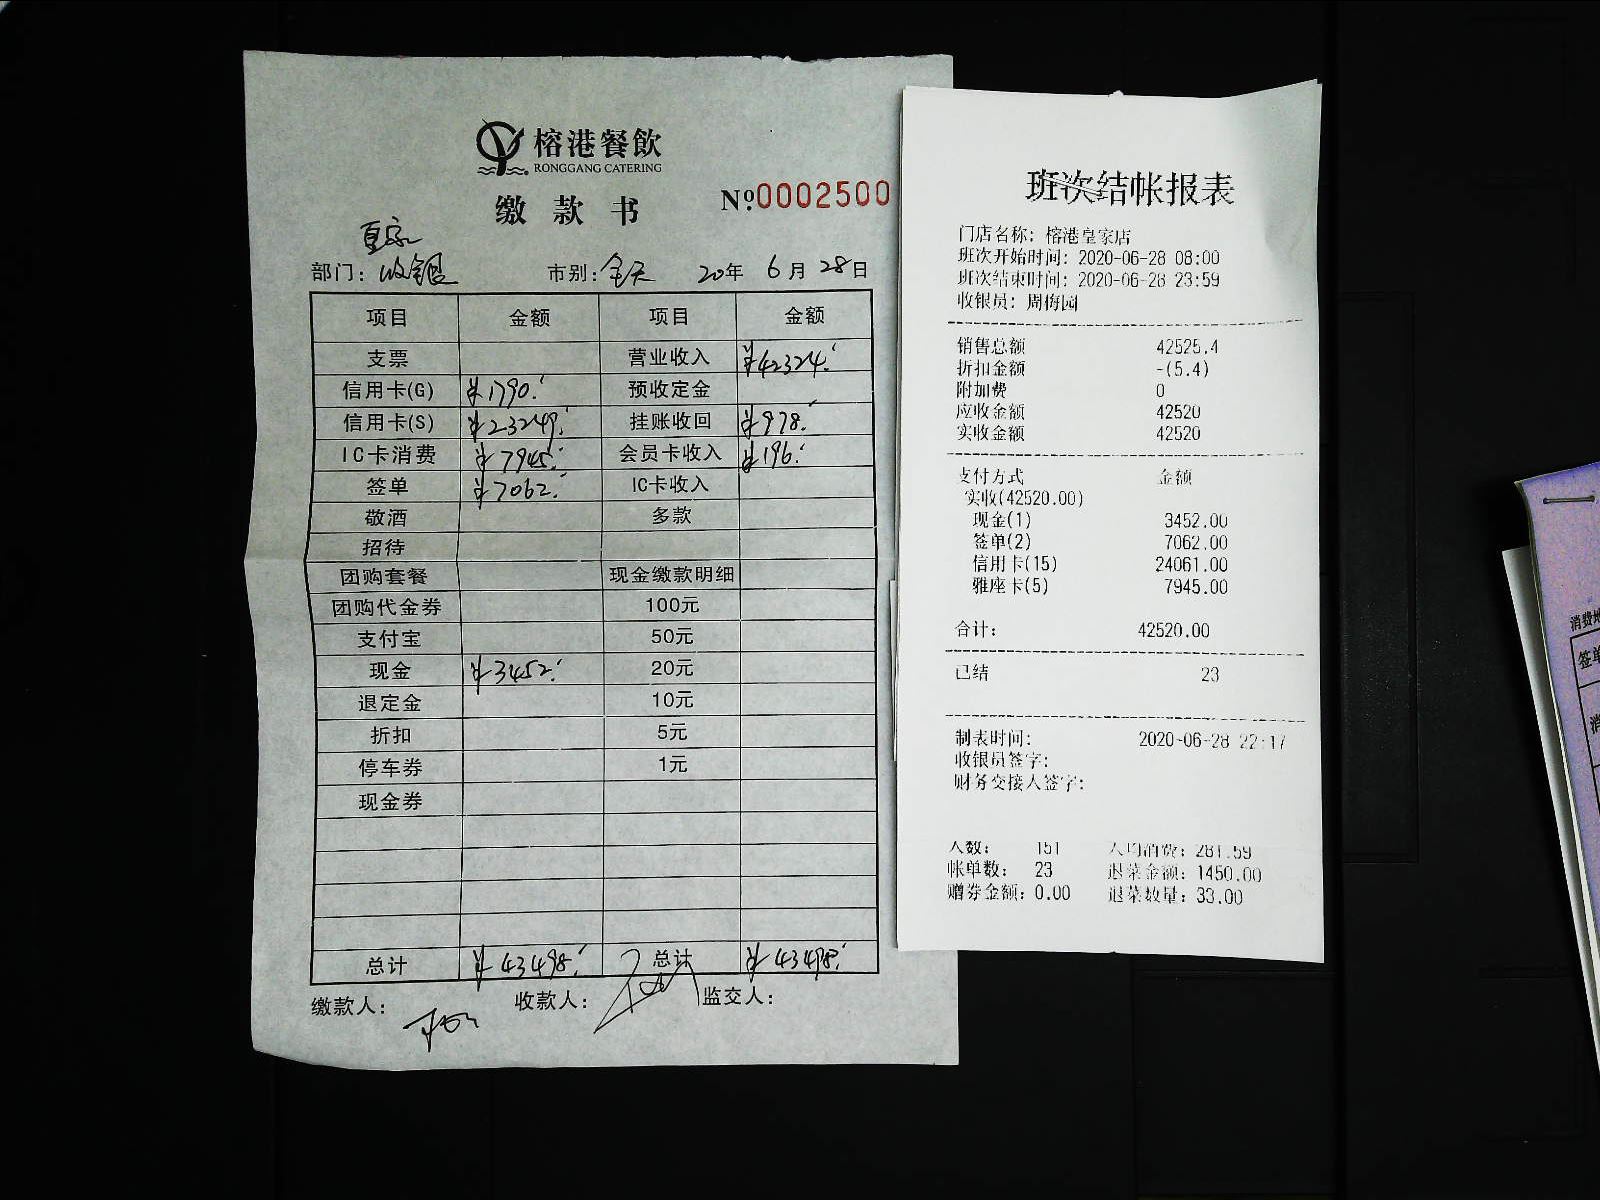 榕港餐飲
RONGGANG CATERING
缴款书
№0002500
皇家
部门：收银 市别：全天 20年 6月 28日
项目 金额 项目 金额
支票 营业收入 ¥42324.
信用卡(G) ¥1790. 预收定金
信用卡(S) ¥23249. 挂账收回 ¥978.
IC卡消费 ¥7945. 会员卡收入 ¥196.
签单 ¥7062. IC卡收入
敬酒 多款
招待
团购套餐 现金缴款明细
团购代金券 100元
支付宝 50元
现金 ¥3452. 20元
退定金 10元
折扣 5元
停车券 1元
现金券
总计 ¥43498. 总计 ¥43498.
缴款人： 收款人： 监交人：
班次结帐报表
门店名称：榕港皇家店
班次开始时间：2020-06-28 08:00
班次结束时间：2020-06-28 23:59
收银员：周梅园
销售总额 42525.4
折扣金额 -(5.4)
附加费 0
应收金额 42520
实收金额 42520
支付方式 金额
实收(42520.00)
现金(1) 3452.00
签单(2) 7062.00
信用卡(15) 24061.00
雅座卡(5) 7945.00
合计： 42520.00
已结 23
制表时间： 2020-06-28 22:17
收银员签字：
财务交接人签字：
人数： 151 人均消费：281.59
帐单数： 23 退菜金额：1450.00
赠券金额：0.00 退菜数量：33.00
消费
签单